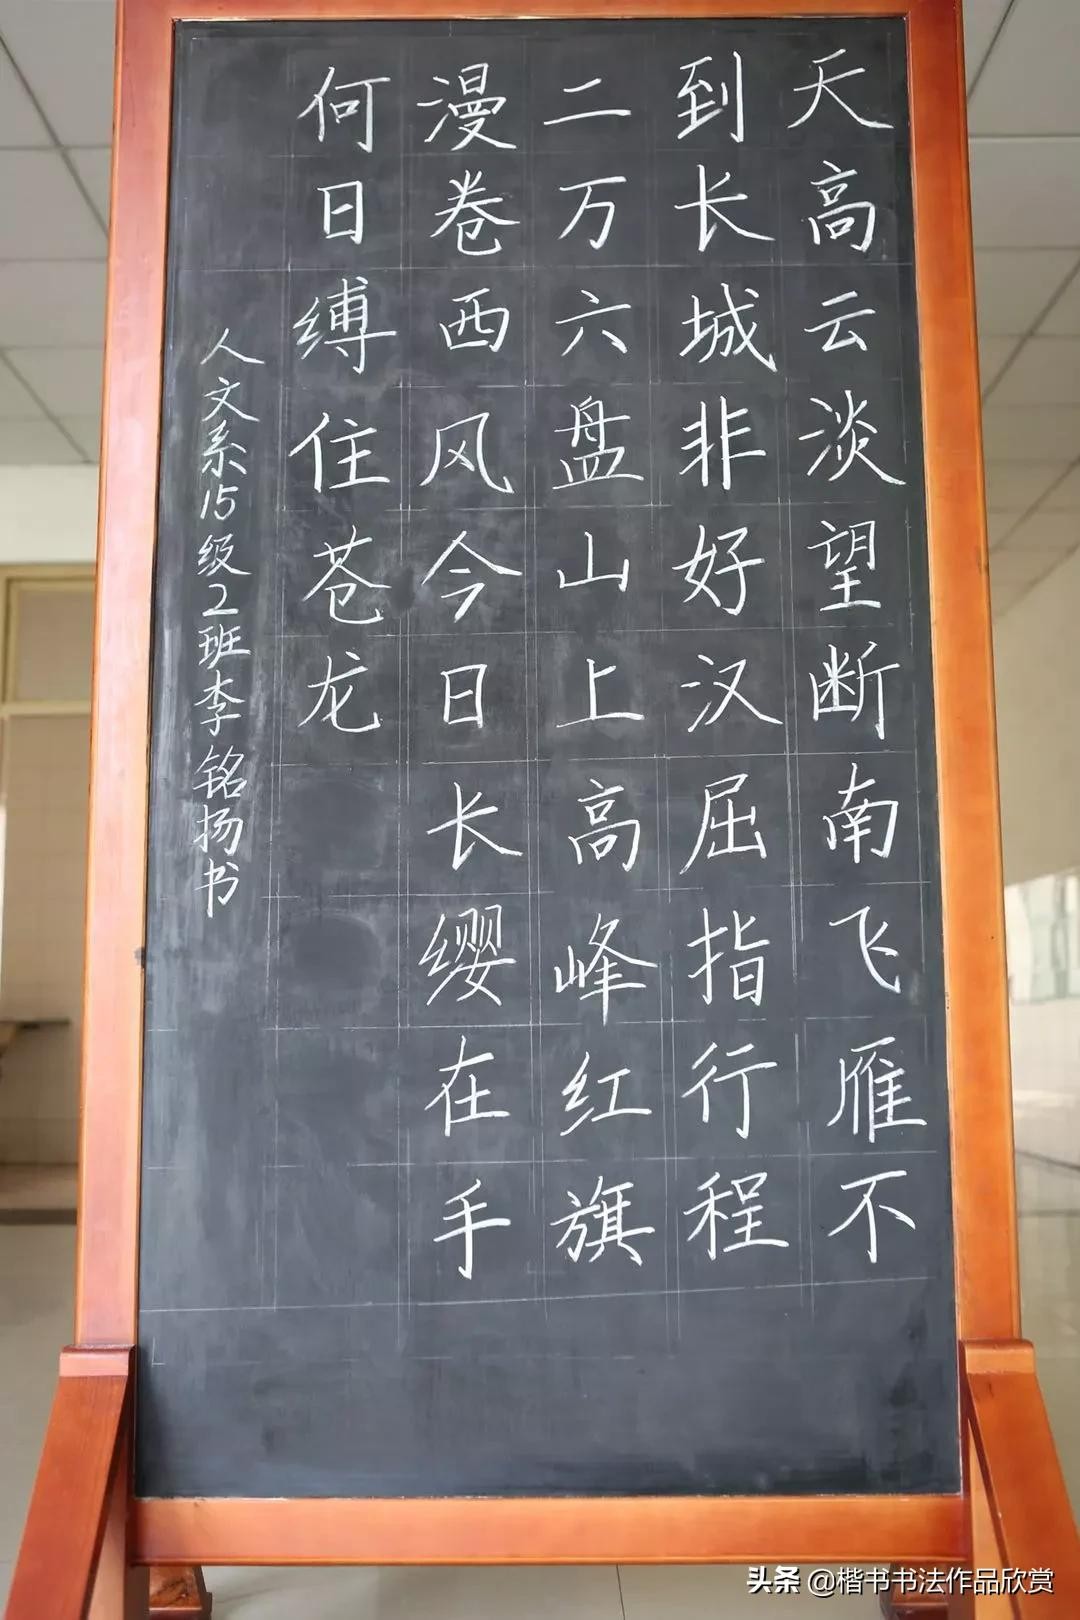 天高云淡望断南飞雁不
到长城非好汉屈指行程
二万六盘山上高峰红旗
漫卷西风今日长缨在手
何日缚住苍龙
人文系15级2班李铭扬书
头条 @楷书书法作品欣赏